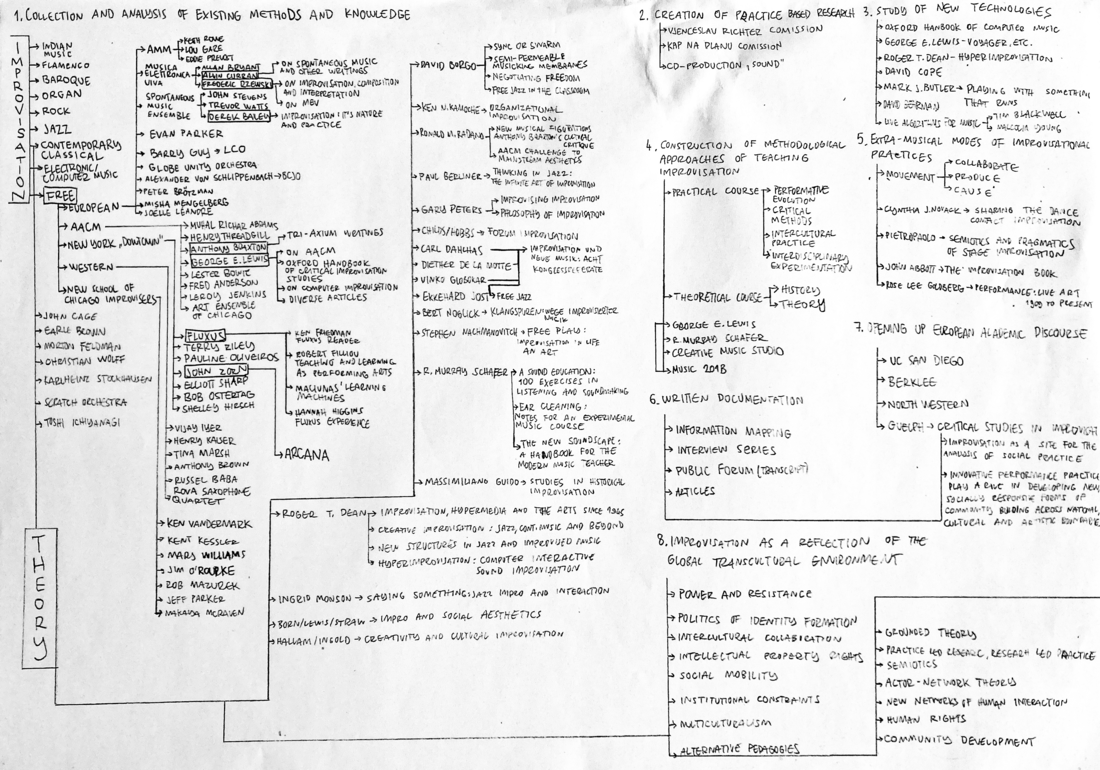 1. COLLECTION AND ANALYSIS OF EXISTING METHODS AND KNOWLEDGE
IMPROVISATION
INDIAN
MUSIC
FLAMENCO
BAROQUE
ORGAN
ROCK
JAZZ
CONTEMPORARY
CLASSICAL
ELECTRONIC/
COMPUTER MUSIC
FREE
EUROPEAN
AMM
KEITH ROWE
LOU GARE
EDDIE PREVOST
MUSICA
ELETTRONICA
VIVA
ALLAN BRYANT
ALVIN CURRAN
FREDERIC RZEWSKI
ON SPONTANEOUS MUSIC
AND OTHER WRITINGS
ON IMPROVISATION, COMPOSITION
AND INTERPRETATION
ON MEV
SPONTANEOUS
MUSIC
ENSEMBLE
JOHN STEVENS
TREVOR WATTS
DEREK BAILEY
IMPROVISATION: IT'S NATURE
AND PRACTICE
EVAN PARKER
BARRY GUY → LCO
GLOBE UNITY ORCHESTRA
ALEXANDER VON SCHLIPPENBACH → BCJO
PETER BRÖTZMAN
MISHA MENGELBERG
JOELLE LEANDRE
AACM
NEW YORK „DOWNTOWN"
WESTERN
NEW SCHOOL OF
CHICAGO IMPROVISERS
MUHAL RICHAR ABRAMS
HENRY THREADGILL
ANTHONY BRAXTON
GEORGE E. LEWIS
LESTER BOWIE
FRED ANDERSON
LEROY JENKINS
ART ENSEMBLE
OF CHICAGO
TRI-AXIUM WRITINGS
ON AACM
OXFORD HANDBOOK
OF CRITICAL IMPROVISATION
STUDIES
ON COMPUTER IMPROVISATION
DIVERSE ARTICLES
JOHN CAGE
EARLE BROWN
MORTON FELDMAN
CHRISTIAN WOLFF
KARLHEINZ STOCKHAUSEN
SCRATCH ORCHESTRA
TOSHI ICHIYANAGI
FLUXUS
TERRY RILEY
PAULINE OLIVEIROS
JOHN ZORN
ELLIOTT SHARP
BOB OSTERTAG
SHELLEY HIRSCH
KEN FRIEDMAN
FLUXUS READER
ROBERT FILLIOU
TEACHING AND LEARNING
AS PERFORMING ARTS
MACIUNAS' LEARNING
MACHINES
HANNAH HIGGINS
FLUXUS EXPERIENCE
ARCANA
VIJAY IYER
HENRY KAISER
TINA MARSH
ANTHONY BROWN
RUSSEL BABA
ROVA SAXOPHONE
QUARTET
KEN VANDERMARK
KENT KESSLER
MARS WILLIAMS
JIM O'ROURKE
ROB MAZUREK
JEFF PARKER
MAKAIDA MCRAVEN
THEORY
DAVID BORGO
SYNC OR SWARM
SEMI-PERMEABLE
MUSICKING MEMBANES
NEGOTIATING FREEDOM
FREE JAZZ IN THE CLASSROOM
KEN N. KAMOCHE → ORGANIZATIONAL
IMPROVISATION
RONALD M. RADANO
NEW MUSICAL FIGURATIONS
ANTHONY BRAXTON'S CULTURAL
CRITIQUE
AACM CHALLENGE TO
MAINSTREAM AESTHETICS
PAUL BERLINER → THINKING IN JAZZ:
THE INFINITE ART OF IMPROVISATION
GARY PETERS
IMPROVISING IMPROVISATION
PHILOSOPHY OF IMPROVISATION
CHILDS/HOBBS → FORUM IMPROVISATION
CARL DAHLHAS
DIETHER DE LA MOTTE
VINKO GLOBOKAR
EKKEHARD JOST
IMPROVISATION UND
NEUE MUSIK: ACHT
KONGRESSREFERATE
FREE JAZZ
BERT NOGLICK → KLANGSPUREN: WEGE IMPROVISIERTER
MUSIK
STEPHEN NACHMANOVITCH → FREE PLAY:
IMPROVISATION IN LIFE
AN ART
R. MURRAY SCHAFER
A SOUND EDUCATION:
100 EXERCISES IN
LISTENING AND SOUNDMAKING
EAR CLEANING:
NOTES FOR AN EXPERIMENTAL
MUSIC COURSE
THE NEW SOUNDSCAPE:
A HANDBOOK FOR THE
MODERN MUSIC TEACHER
MASSIMILIANO GUIDO → STUDIES IN HISTORICAL
IMPROVISATION
ROGER T. DEAN
IMPROVISATION, HYPERMEDIA AND THE ARTS SINCE 1945
CREATIVE IMPROVISATION: JAZZ, CONT. MUSIC AND BEYOND
NEW STRUCTURES IN JAZZ AND IMPROVISED MUSIC
HYPERIMPROVISATION: COMPUTER INTERACTIVE
SOUND IMPROVISATION
INGRID MONSON → SAYING SOMETHING: JAZZ IMPRO AND INTERACTION
BORN/LEWIS/STRAW → IMPRO AND SOCIAL AESTHETICS
HALLAM/INGOLD → CREATIVITY AND CULTURAL IMPROVISATION
2. CREATION OF PRACTICE BASED RESEARCH
VJENCESLAV RICHTER COMISSION
KAP NA PLANU COMISSION
CD-PRODUCTION „SOUND"
3. STUDY OF NEW TECHNOLOGIES
OXFORD HANBOOK OF COMPUTER MUSIC
GEORGE E. LEWIS - VOYAGER, ETC.
ROGER T. DEAN - HYPERIMPROVISATION
DAVID COPE
MARK J. BUTLER → PLAYING WITH SOMETHING
THAT RUNS
DAVID BORGO
LIVE ALGORITHMS FOR MUSIC
TIM BLACKWELL
MALCOLM YOUNG
4. CONSTRUCTION OF METHODOLOGICAL
APPROACHES OF TEACHING
IMPROVISATION
PRACTICAL COURSE
PERFORMATIVE
EVOLUTION
CRITICAL
METHODS
INTERCULTURAL
PRACTICE
INTERDISCIPLINARY
EXPERIMENTATION
THEORETICAL COURSE
HISTORY
THEORY
GEORGE E. LEWIS
R. MURRAY SCHAFER
CREATIVE MUSIC STUDIO
MUSIC 201B
5. EXTRA-MUSICAL MODES OF IMPROVISATIONAL
PRACTICES
MOVEMENT
COLLABORATE
PRODUCE
CAUSE
CYNTHIA J. NOVACK → SHARING THE DANCE
CONTACT IMPROVISATION
PIETROPAOLO → SEMIOTICS AND PRAGMATICS
OF STAGE IMPROVISATION
JOHN ABBOTT → THE IMPROVISATION BOOK
ROSE LEE GOLDBERG → PERFORMANCE: LIVE ART
1909 TO PRESENT
6. WRITTEN DOCUMENTATION
INFORMATION MAPPING
INTERVIEW SERIES
PUBLIC FORUM (TRANSCRIPT)
ARTICLES
7. OPENING UP EUROPEAN ACADEMIC DISCOURSE
UC SAN DIEGO
BERKLEE
NORTH WESTERN
GUELPH → CRITICAL STUDIES IN IMPROVISATI
IMPROVISATION AS A SITE FOR THE
ANALYSIS OF SOCIAL PRACTICE
INNOVATIVE PERFORMANCE PRACTICE
PLAY A ROLE IN DEVELOPING NEW
SOCIALLY RESPONSIVE FORMS OF
COMMUNITY BUILDING ACROSS NATIONAL,
CULTURAL AND ARTISTIC BOUNDARIE
8. IMPROVISATION AS A REFLECTION OF THE
GLOBAL TRANSCULTURAL ENVIRONMENT
POWER AND RESISTANCE
POLITICS OF IDENTITY FORMATION
INTERCULTURAL COLLABORATION
INTELLECTUAL PROPERTY RIGHTS
SOCIAL MOBILITY
INSTITUTIONAL CONSTRAINTS
MULTICULTURALISM
ALTERNATIVE PEDAGOGIES
GROUNDED THEORY
PRACTICE LED RESEARC, RESEARH LED PRACTICE
SEMIOTICS
ACTOR-NETWORK THEORY
NEW NETWORKS OF HUMAN INTERACTION
HUMAN RIGHTS
COMMUNITY DEVELOPMENT